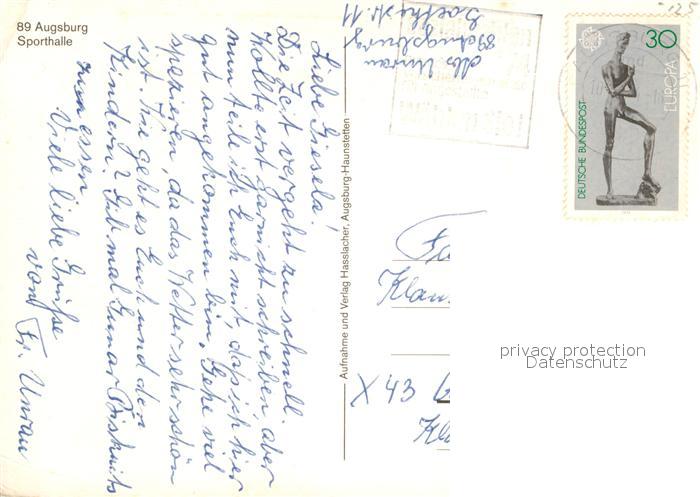 89 Augsburg
Sporthalle
Liebe Giesela!
Die Zeit vergeht zu schnell.
Wollte erst garnicht schreiben aber
nun teile ich Euch mit, das ich hier
gut angekommen bin. Gehe viel
spazieren, da das Wetter sehr schön
ist. Wie geht es Euch und den
Kindern? Gib mal Gunar Biskuits
zum essen
Viele liebe Grüße
von Fr. Unrau
Aufnahme und Verlag Hasslacher, Augsburg-Haunstetten
Abs Unrau
89 Augsburg
Goethestr. 11
30
EUROPA
DEUTSCHE BUNDESPOST
Fa
Klau
X 43
Kla
privacy protection
Datenschutz